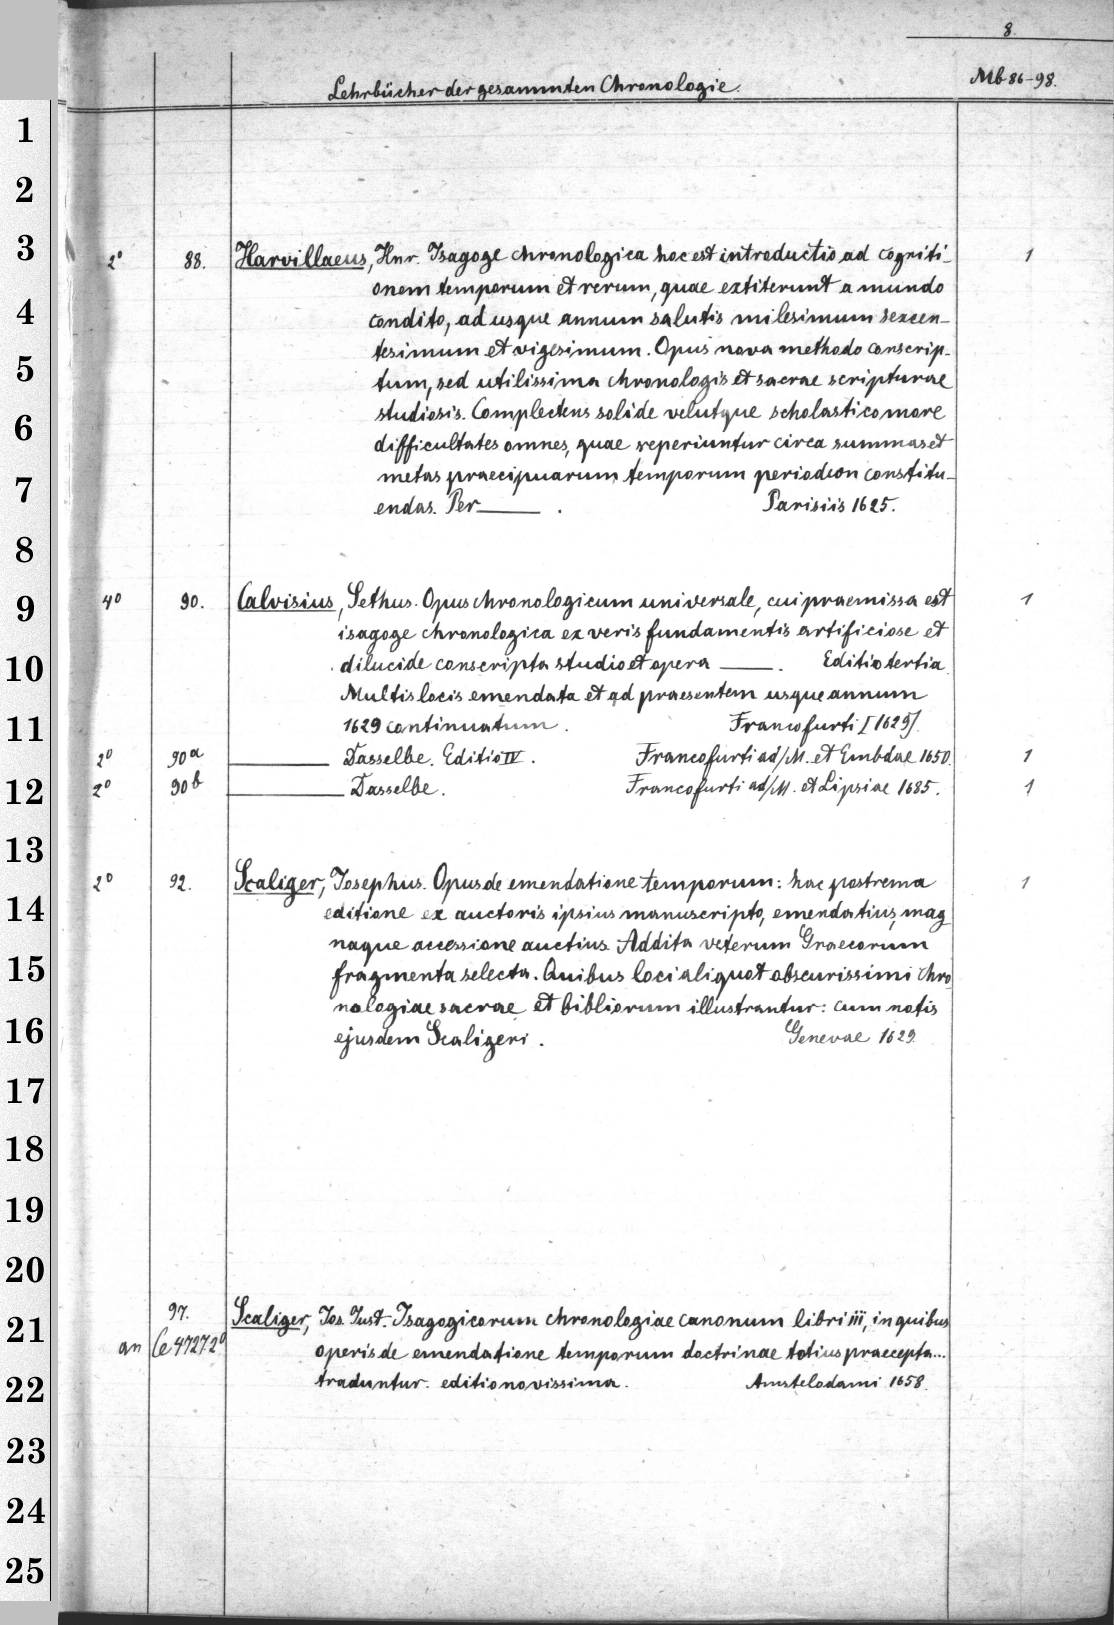 8.
Lehrbücher der gesammten Chronologie. Mb 86-98.
1
2
3
4
5
6
7
8
9
10
11
12
13
14
15
16
17
18
19
20
21
22
23
24
25
2° 88. Harvillaeus, Hnr. Isagoge chronologica hoc est introductio ad cogniti- 1
onem temporum et rerum, quae extiterunt a mundo
condito, ad usque annum salutis milesimum sexcen-
tesimum et vigesimum. Opus nova methodo conscrip-
tum, sed utilissima chronologis et sacrae scripturae
studiosis. Complectens solide velutque scholastico more
difficultates omnes, quae reperiuntur circa summas et
metas praecipuarum temporum periodωn constitu-
endas. Per ——— . Parisiis 1625.
4° 90. Calvisius, Sethus. Opus chronologicum universale, cui praemissa est 1
isagoge chronologica ex veris fundamentis artificiose et
dilucide conscripta studio et opera ———. Editio tertia
Multis locis emendata et ad praesentem usque annum
1629 continuatum. Francofurti [1629].
2° 90a ——— Dasselbe. Editio IV. Francofurti ad/M. et Embdae 1650. 1
2° 90b ——— Dasselbe. Francofurti ad/M. et Lipsiae 1685. 1
2° 92. Scaliger, Josephus. Opus de emendatione temporum: hac postrema 1
editione ex auctoris ipsius manuscripto, emendatius, mag
naque accessione auctius. Addita veterum Graecorum
fragmenta selecta. Quibus loci aliquot obscurissimi chro
nologiae sacrae et bibliorum illustrantur: cum notis
ejusdem Scaligeri. Genevae 1629.
97. Scaliger, Jos. Just. Isagogicorum chronologiae canonum libri iii, in quibus
an Ce 4727 2° operis de emendatione temporum doctrinae totius praecepta...
traduntur. editio novissima. Amstelodami 1658.